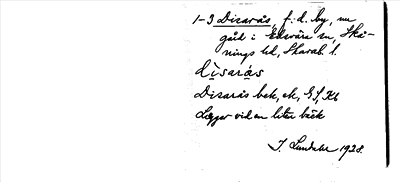 1-3 Disarås, f. d. by, nu
gård i Edsvära sn, Skå-
nings hd, Skarab. l.
dìsarås
Disarås bek, ek, GS, Kb
Ligger vid en liten bäck
J. Lundahl 1928.